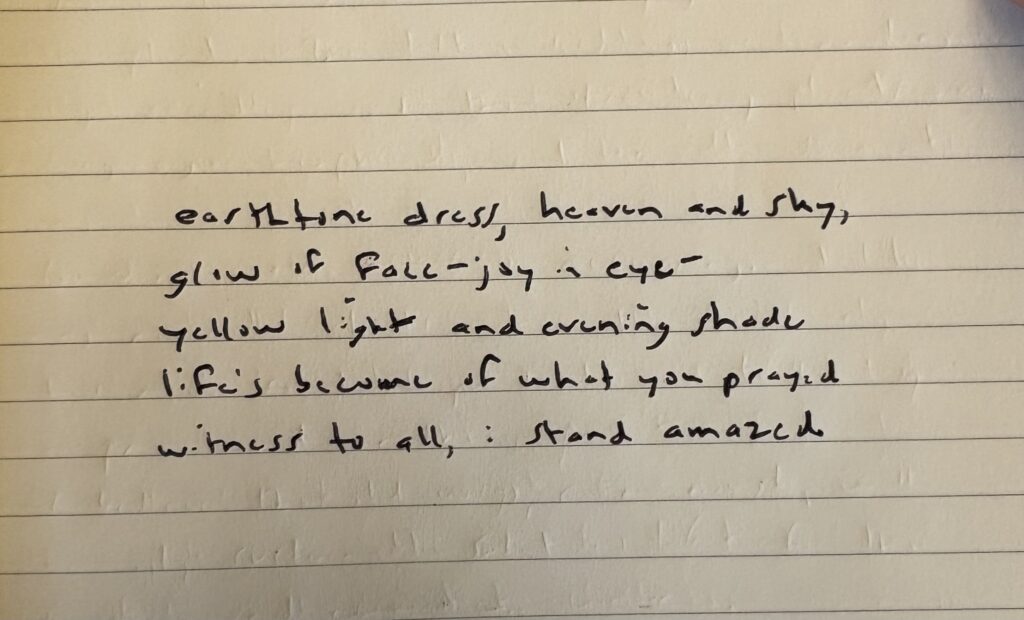 earthtone dress, heaven and sky,
glow of face - joy in eye -
yellow light and evening shade
life's become of what you prayed
witness to all, i stand amazed